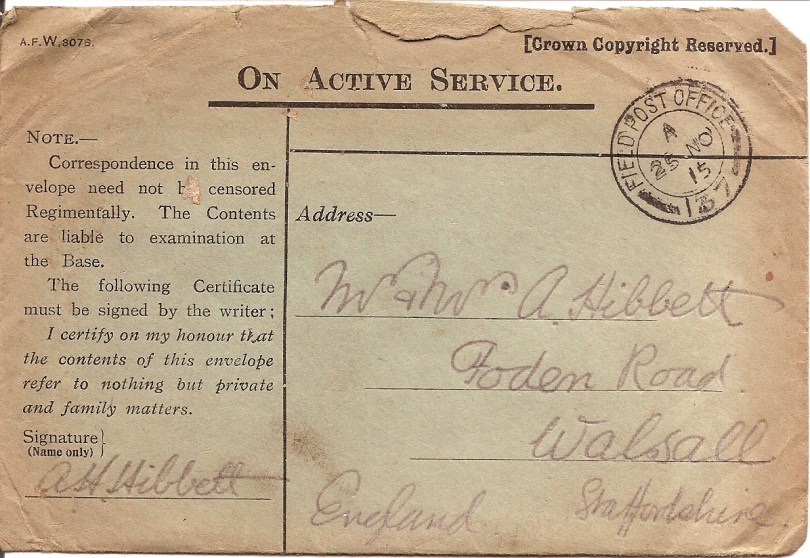 A.F.W.3078.
[Crown Copyright Reserved.]
ON ACTIVE SERVICE.
FIELD POST OFFICE
A
25 NO
15
137
NOTE.—
Correspondence in this en-
velope need not be censored
Regimentally. The Contents
are liable to examination at
the Base.
The following Certificate
must be signed by the writer;
I certify on my honour that
the contents of this envelope
refer to nothing but private
and family matters.
Signature}
(Name only)
AH Hibbett
Address—
Mr & Mrs A Hibbett
Foden Road
Walsall
Staffordshire
England